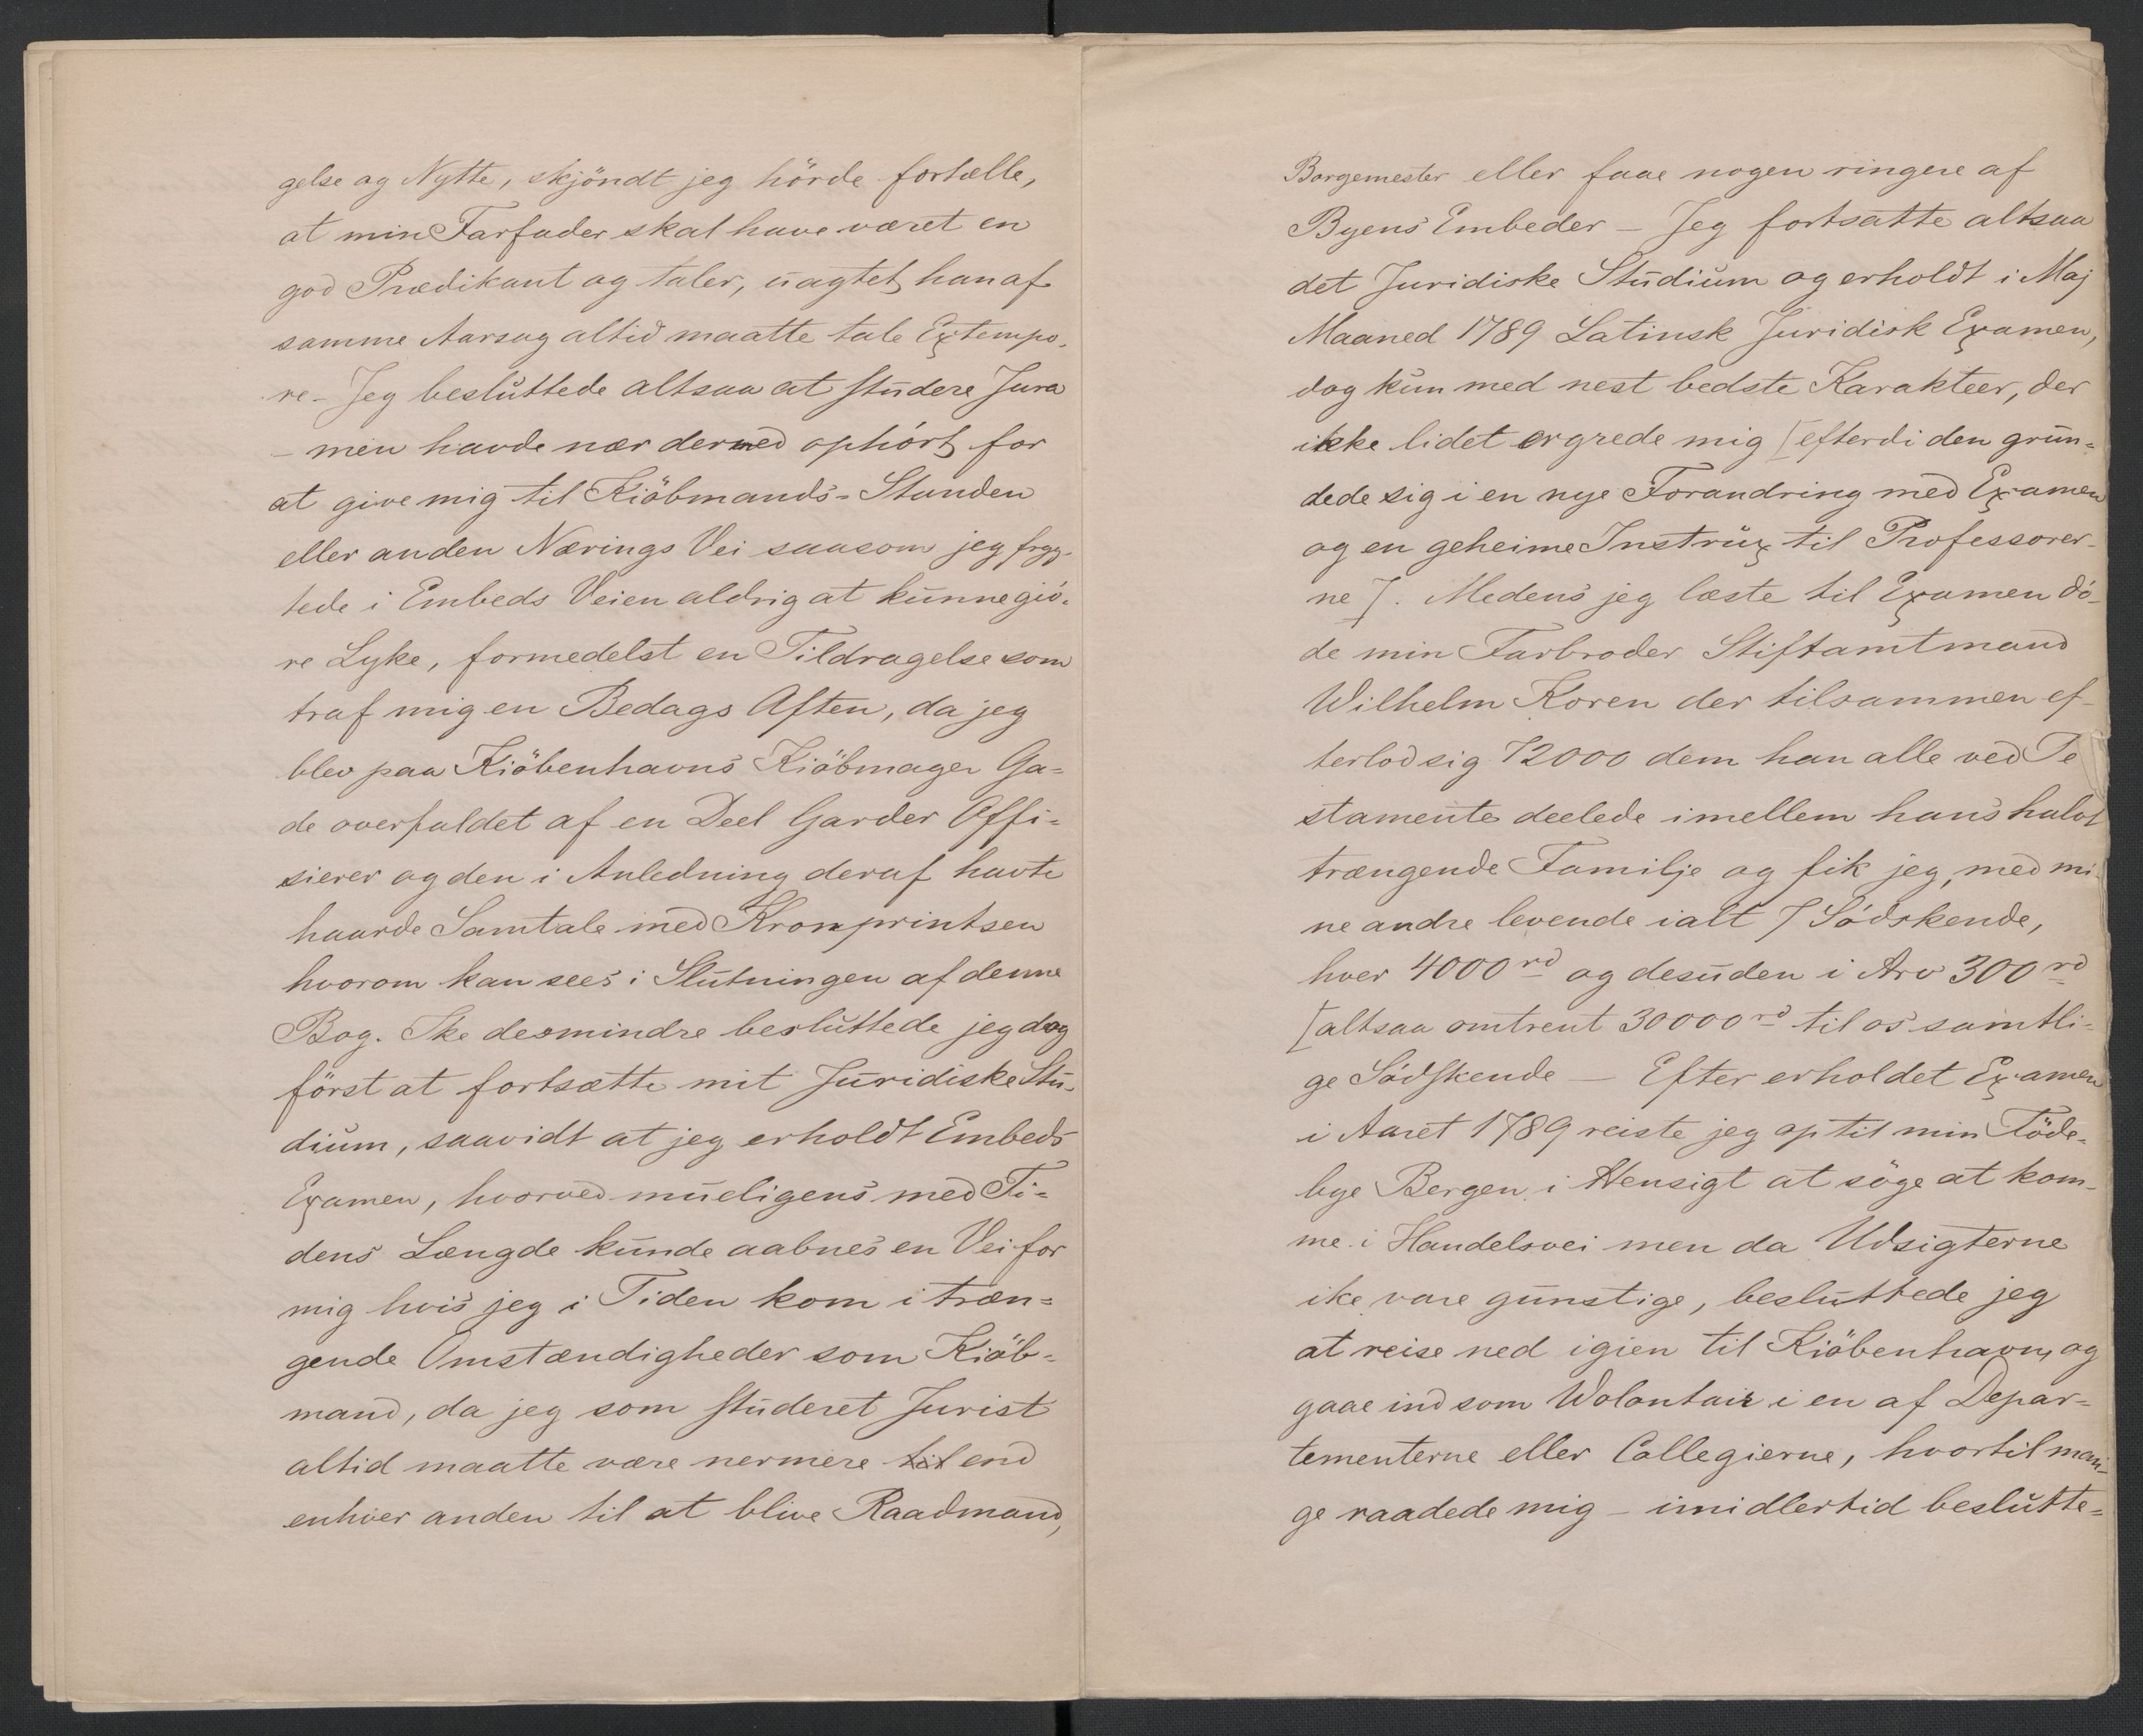 gelse og Nytte, skjöndt jeg hörde fortælle,
at min Farfader skal have været en
god Prædikant og taler, uagtet han af
samme Aarsag altid maatte tale Extempo-
re - Jeg besluttede altsaa at studere Jura
- men havde nær dermed ophört for
at give mig til Kiöbmands-Standen
eller anden Nærings Vei saasom jeg fryg-
tede i Embeds Veien aldrig at kunne giö-
re Lyke, formedelst en Tildragelse som
traf mig en Bedags Aften, da jeg
blev paa Kiöbenhavns Kiöbmager Ga-
de overfaldet af en Deel Garder Offi-
sierer og den i Anledning deraf havte
haarde Samtale med Kronprintsen
hvorom kan sees i Slutningen af denne
Bog. Ike desmindre besluttede jeg dog
först at fortsætte mit Juridiske Stu-
dium, saavidt at jeg erholdt Embeds
Examen, hvorved mueligens med Ti-
dens Længde kunde aabnes en Vei for
mig hvis jeg i Tiden kom i træn-
gende Omstændigheder som Kiöb-
mand, da jeg som studeret Jurist
altid maatte være nermere til end
enhver anden til at blive Raadmand,
Borgemester eller faae nogen ringere af
Byens Embeder - Jeg fortsatte altsaa
det Juridiske Studium og erholdt i Maj
Maaned 1789 Latinsk Juridisk Examen,
dog kun med nest bedste Karakteer, der
ikke lidet ergrede mig [efterdi den grun-
dede sig i en nye Forandring med Examen
og en geheime Instrux til Professorer-
ne]. Medens jeg læste til Examen dö-
de min Farbroder Stiftamtmand
Wilhelm Koren der tilsammen ef-
terlod sig 72000 dem han alle ved Te
stamente deelede imellem hans halvt
trængende Familje og fik jeg, med mi-
ne andre levende ialt 7 Södskende,
hver 4000 rd og desuden i Arv 300 rd
[altsaa omtrent 30000 rd til os samtli-
ge Södskende - Efter erholdet Examen
i Aaret 1789 reiste jeg op til min Föde-
bye Bergen i Hensigt at söge at kom-
me i Handelsvei men da Udsigterne
ike vare gunstige, besluttede jeg
at reise ned igien til Kiöbenhavn, og
gaae ind som Wolontair i en af Depar-
tementerne eller Collegierne, hvortil man-
ge raadede mig - imidlertid beslutte-